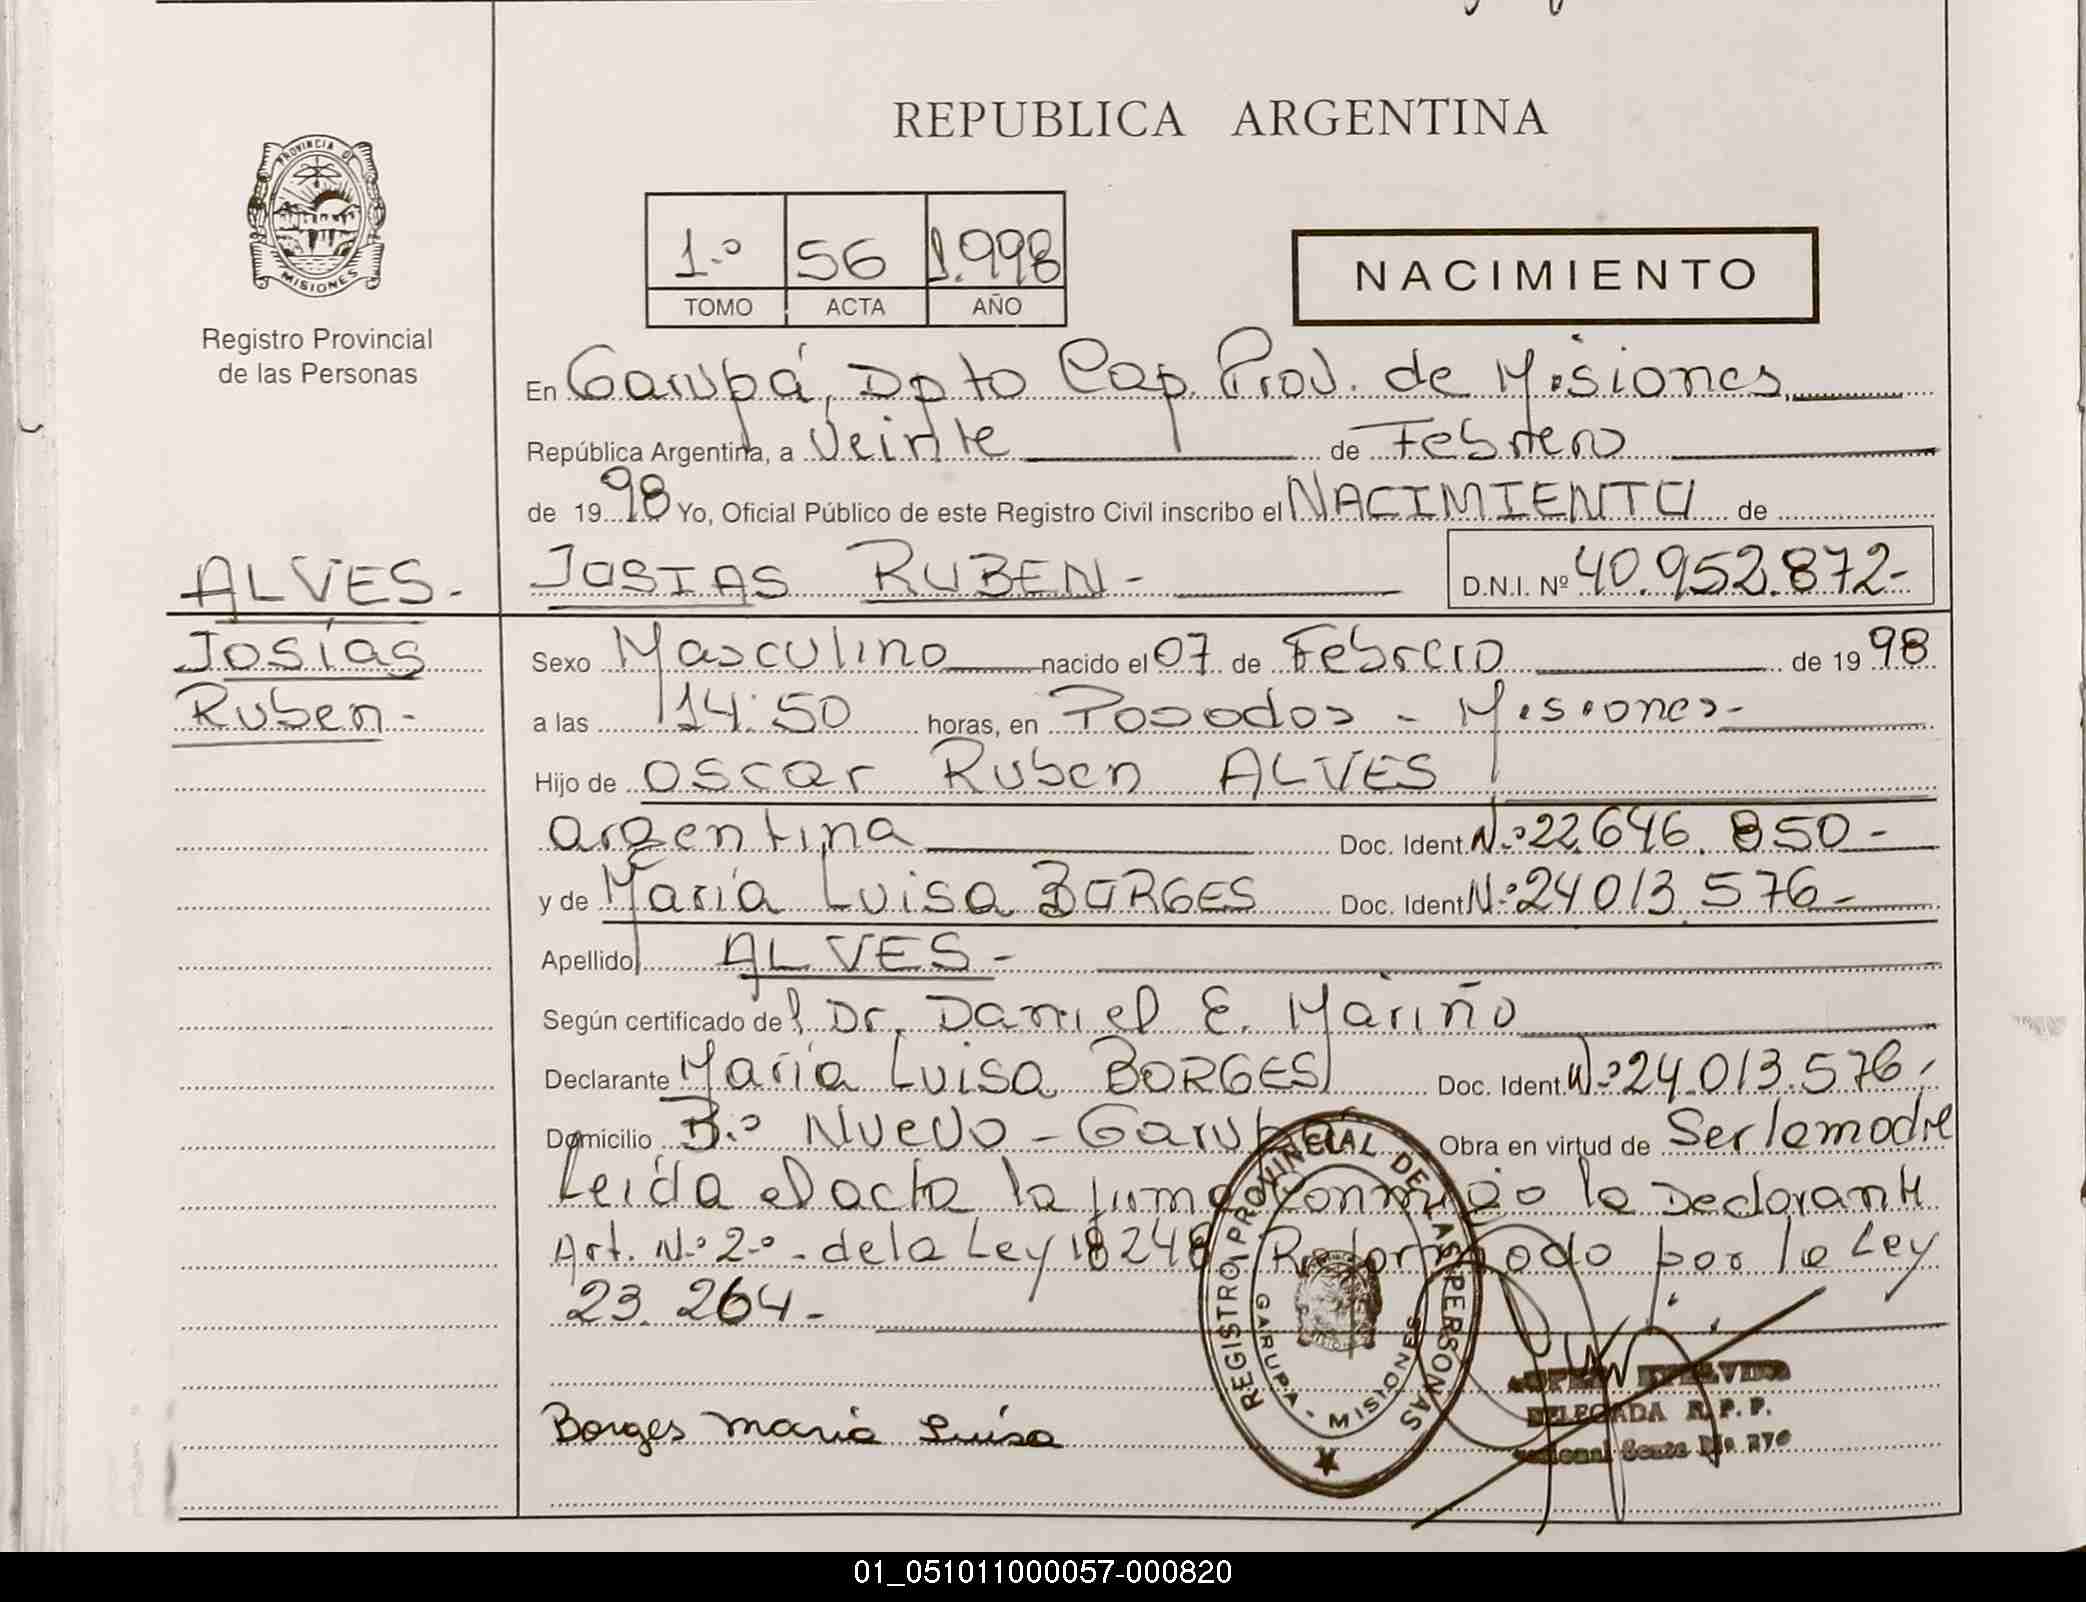 REPUBLICA ARGENTINA
PROVINCIA DE
MISIONES
Registro Provincial
de las Personas
1.º 56 1.998
TOMO ACTA AÑO
NACIMIENTO
En Garupá, Dpto Cap. Prov. de Misiones,
República Argentina, a Veinte de Febrero
de 1998 Yo, Oficial Público de este Registro Civil inscribo el NACIMIENTO de
ALVES.- JOSIAS RUBEN- D.N.I. Nº 40.952.872-
Josías Sexo Masculino nacido el 07 de Febrero de 1998
Ruben- a las 14:50 horas, en Posadas - Misiones-
Hijo de Oscar Ruben ALVES
argentina Doc. Ident. N.º 22.646.850-
y de María Luisa BORGES Doc. Ident. N.º 24.013.576-
Apellido ALVES-
Según certificado del Dr. Daniel E. Mariño
Declarante María Luisa BORGES Doc. Ident. N.º 24.013.576,
Domicilio B.º Nuevo - Garupá Obra en virtud de Ser la madre
Leída el acta la firma conmigo la Declarante
Art. N.º 2.º - de la Ley 18248 Reformado por la Ley
23.264-
REGISTRO PROVINCIAL DE LAS PERSONAS
GARUPA - MISIONES
DELEGADA R.P.P.
Borges Maria Luisa
01_051011000057-000820